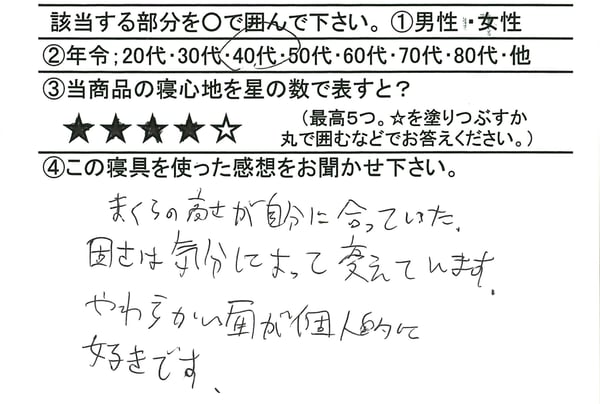 該当する部分を○で囲んで下さい。①男性・女性
②年令；20代・30代・40代・50代・60代・70代・80代・他
③当商品の寝心地を星の数で表すと？
★★★★☆
（最高5つ。☆を塗りつぶすか
丸で囲むなどでお答えください。）
④この寝具を使った感想をお聞かせ下さい。
まくらの高さが自分に合っていた。
固さは気分によって変えています。
やわらかい面が個人的に
好きです。